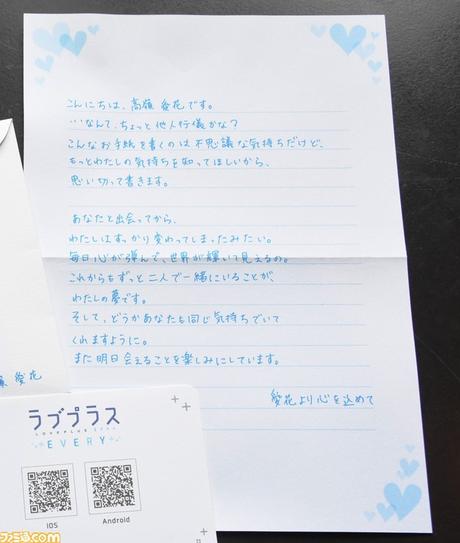 こんにちは、高嶺 愛花です。
…なんて、ちょっと他人行儀かな?
こんなお手紙を書くのは不思議な気持ちだけど、
もっとわたしの気持ちを知ってほしいから、
思い切って書きます。
あなたと出会ってから、
わたしはすっかり変わってしまったみたい。
毎日心が弾んで、世界が輝いて見えるの。
これからもずっと二人で一緒にいることが、
わたしの夢です。
そして、どうかあなたも同じ気持ちでいて
くれますように。
また明日会えることを楽しみにしています。
愛花より心を込めて
愛花
ラブプラス
LOVEPLUS EVERY
EVERY
iOS
Android
ファミ通.com